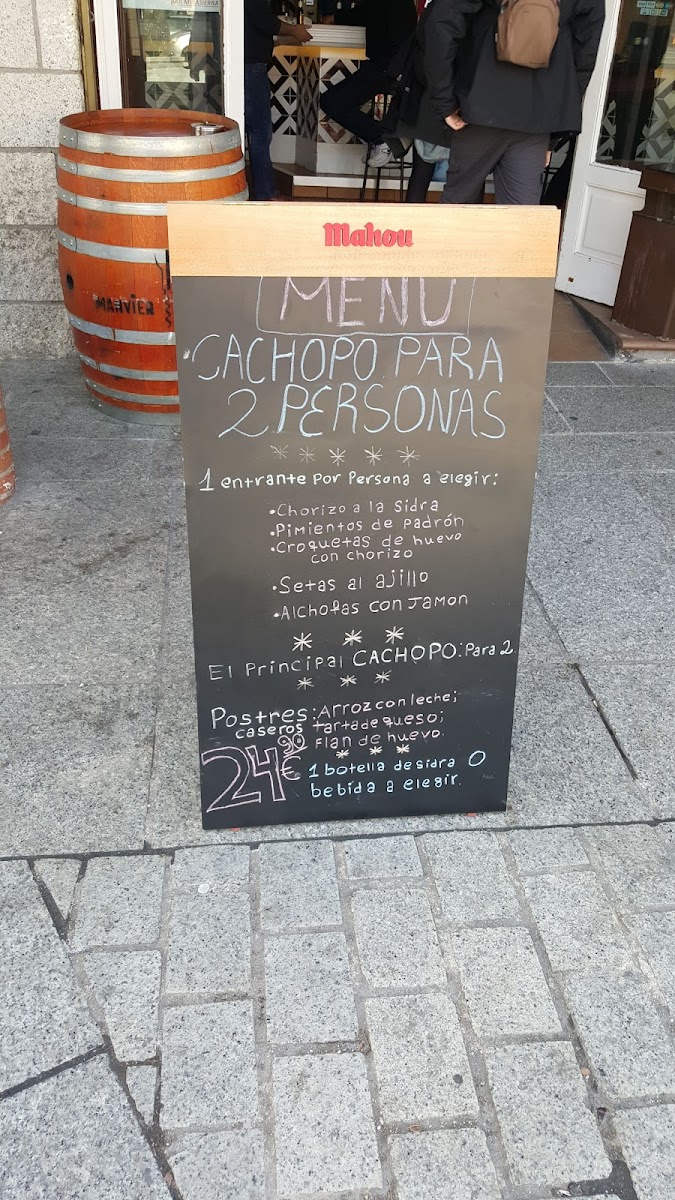 MARVIER
Mahou
MENÚ
CACHOPO PARA
2 PERSONAS
1 entrante por persona a elegir:
•Chorizo a la sidra
•Pimientos de padrón
•Croquetas de huevo
con chorizo
•Setas al ajillo
•Alchofas con Jamon
El Principal CACHOPO: Para 2
Postres: Arroz con leche;
caseros tarta de queso;
Flan de huevo.
24,90€
1 botella de sidra O
bebida a elegir.